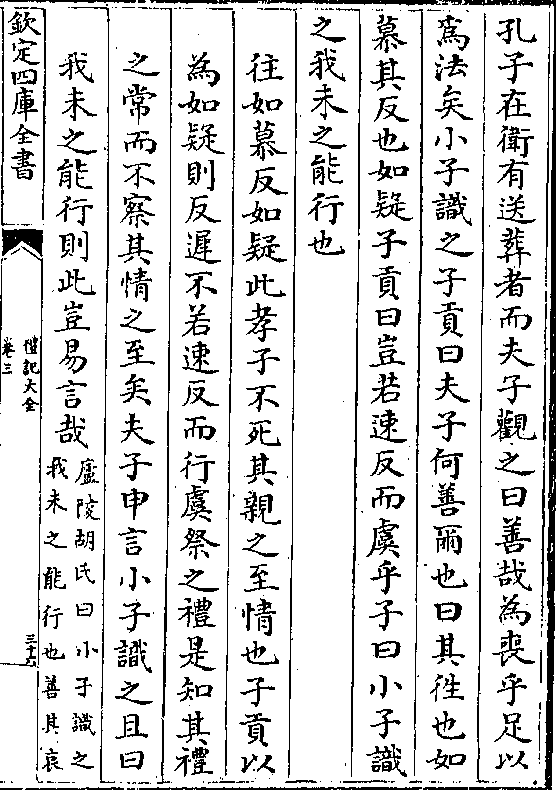 孔子在衛有送葬者而夫子觀之曰善哉為喪乎足以
為法矣小子識之子貢曰夫子何善爾也曰其徃也如
慕其反也如疑子貢曰豈若速反而虞乎子曰小子識
之我未之能行也
往如慕反如疑此孝子不死其親之至情也子貢以
為如疑則反遲不若速反而行虞祭之禮是知其禮
之常而不察其情之至矣夫子申言小子識之且曰
我未之能行則此豈易言哉
廬陵胡氏曰小子識之
我未之能行也善其哀
欽定四庫全書
禮記大全
卷三
三十六